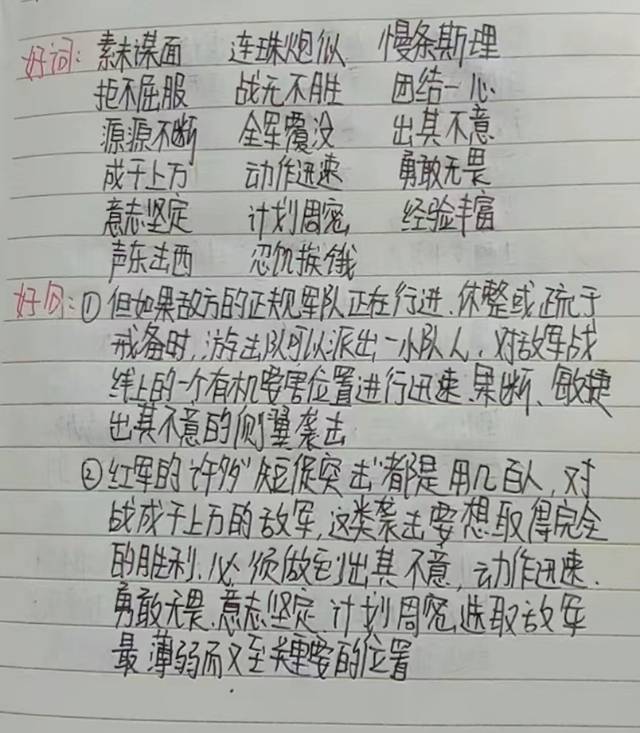 好词: 素未谋面 连珠炮似 慢条斯理
拒不屈服 战无不胜 团结一心
源源不断 全军覆没 出其不意
成千上万 动作迅速 勇敢无畏
意志坚定 计划周密 经验丰富
声东击西 忍饥挨饿
好句: ① 但如果敌方的正规军队正在行进、休整或疏于
戒备时,游击队可以派出一小队人,对敌军战
线上的一个有机要害位置进行迅速、果断、敏捷
出其不意的侧翼袭击
② 红军的“许多”短促突击”都是用几百人,对
战成千上万的敌军,这类袭击要想取得完全
的胜利、必须做到出其不意,动作迅速.
勇敢无畏.意志坚定、计划周密,选取敌军
最薄弱而又至关重要的位置